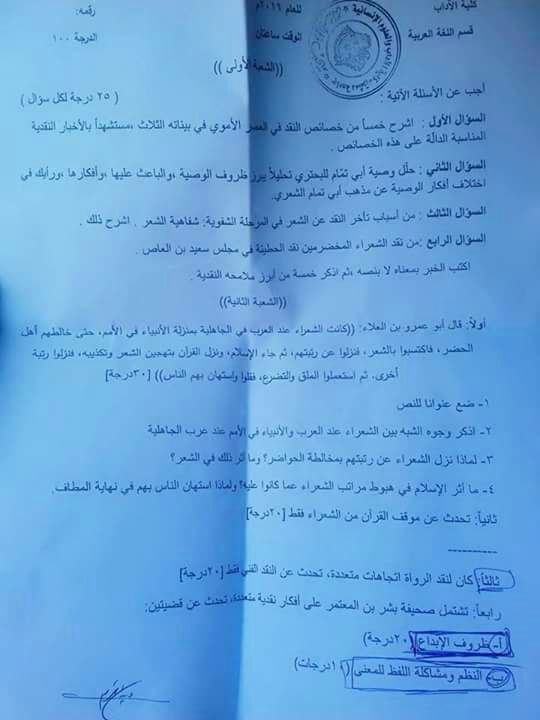 كلية الآداب للعام ٢٠١٦م رقمه:
قسم اللغة العربية الوقت ساعتان الدرجة ١٠٠
((الشعبة الأولى))
أجب عن الأسئلة الآتية : ( ٢٥ درجة لكل سؤال )
السؤال الأول : اشرح خمساً من خصائص النقد في العصر الأموي في بيئاته الثلاث ،مستشهداً بالأخبار النقدية
المناسبة الدالّة على هذه الخصائص .
السؤال الثاني : حلّل وصية أبي تمّام للبحتري تحليلاً يبرز ظروف الوصية ،والباعث عليها ،وأفكارها ،ورأيك في
اختلاف أفكار الوصية عن مذهب أبي تمام الشعري.
السؤال الثالث : من أسباب تأخر النقد عن الشعر في المرحلة الشفوية: شفاهية الشعر . اشرح ذلك .
السؤال الرابع : من نقد الشعراء المخضرمين نقد الحطيئة في مجلس سعيد بن العاص .
اكتب الخبر بمعناه لا بنصه ،ثم اذكر خمسة من أبرز ملامحه النقدية .
((الشعبة الثانية))
أولاً: قال أبو عمرو بن العلاء: ((كانت الشعراء عند العرب في الجاهلية بمنزلة الأنبياء في الأمم، حتى خالطهم أهل
الحضر، فاكتسبوا بالشعر، فنزلوا عن رتبتهم، ثم جاء الإسلام، ونزل القرآن بتهجين الشعر وتكذيبه، فنزلوا رتبة
أخرى. ثم استعملوا الملق والتضرع، فقلوا واستهان بهم الناس)) [٣٠درجة]
١- ضع عنوانا للنص
٢- اذكر وجوه الشبه بين الشعراء عند العرب والأنبياء في الأمم عند عرب الجاهلية
٣- لماذا نزل الشعراء عن رتبتهم بمخالطة الحواضر؟ وما أثر ذلك في الشعر؟
٤- ما أثر الإسلام في هبوط مراتب الشعراء عما كانوا عليه؟ ولماذا استهان الناس بهم في نهاية المطاف.
ثانياً: تحدث عن موقف القرآن من الشعراء فقط [٢٠درجة]
----------
ثالثاً: كان لنقد الرواة اتجاهات متعددة، تحدث عن النقد الفني فقط [٢٠درجة]
رابعاً: تشتمل صحيفة بشر بن المعتمر على أفكار نقدية متعددة، تحدث عن قضيتين:
أ- ظروف الإبداع (٢٠درجة)
ب- النظم ومشاكلة اللفظ للمعنى (١٠درجات)